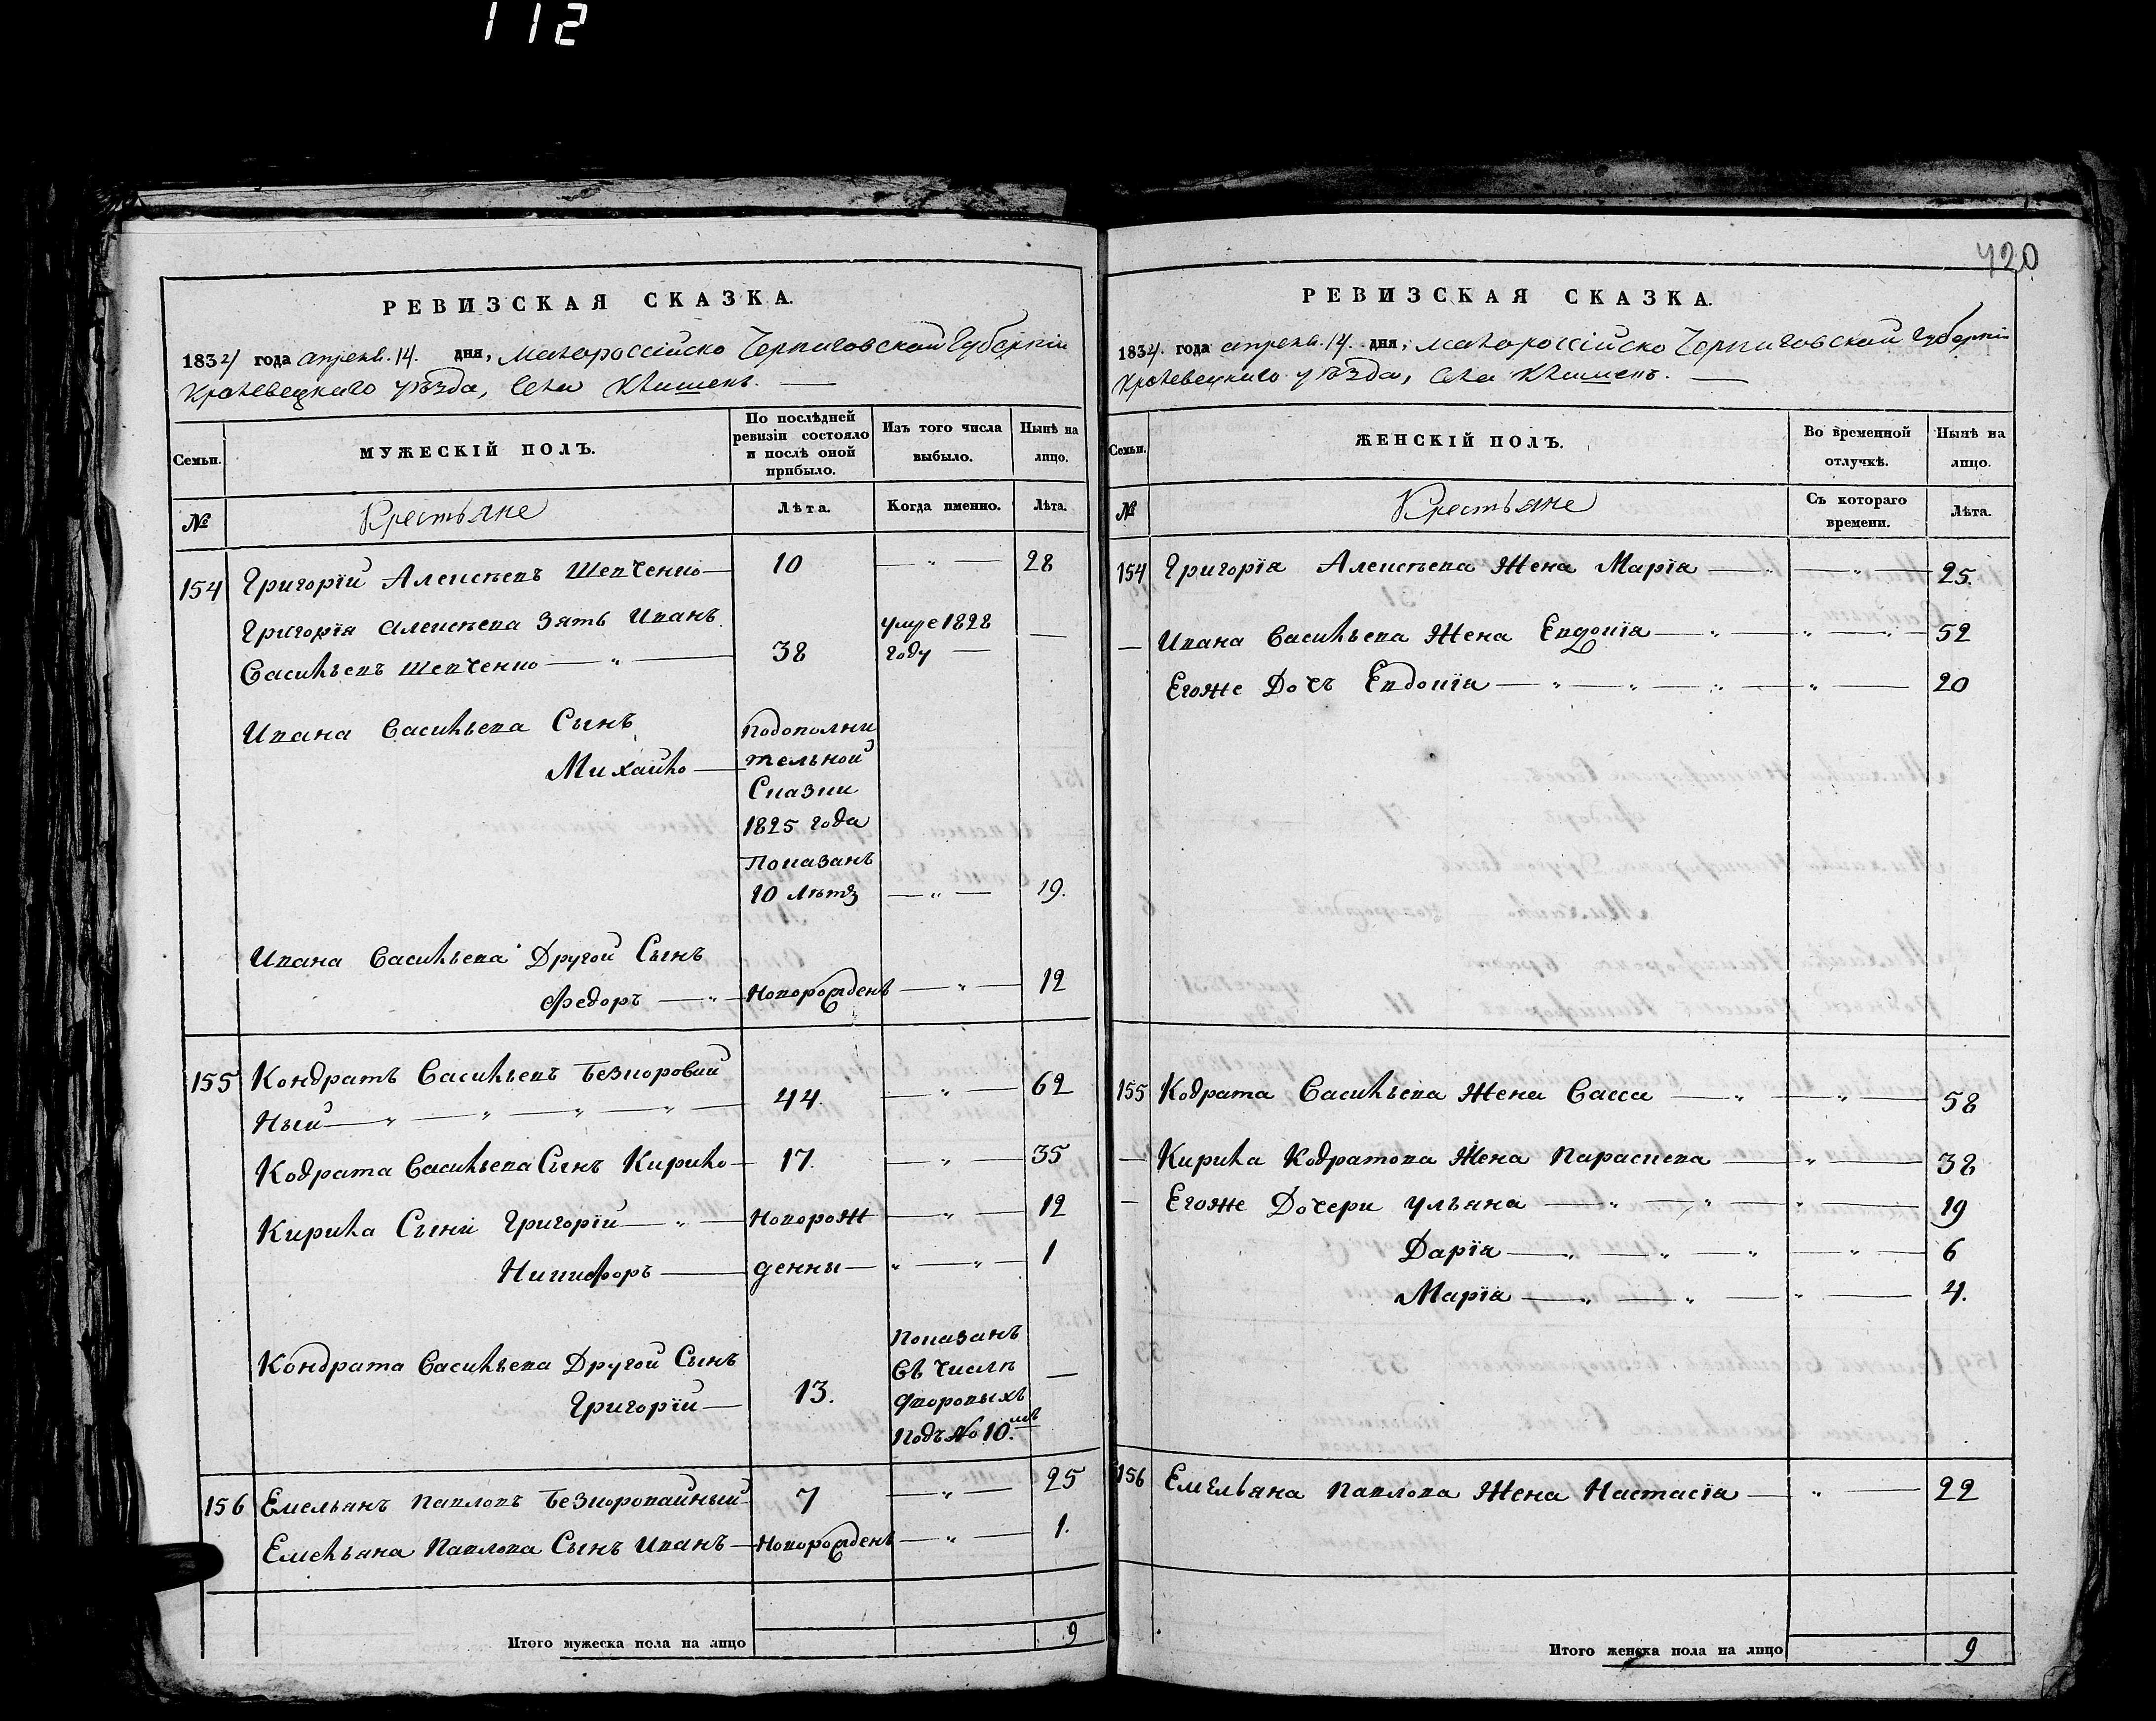 112
РЕВИЗСКАЯ СКАЗКА.
1834 года апреля. 14. дня, Малороссійско Черниговской Губерніи
Кролевецкаго уѣзда, Села Клишекъ. —
Семьи.
МУЖЕСКІЙ ПОЛЪ.
По послѣдней ревизіи состояло и послѣ оной прибыло.
Изъ того числа выбыло.
Нынѣ на лицо.
№
Крестьяне
Лѣта.
Когда именно.
Лѣта.
154 Григорій Алексѣевъ Шевченко — 10 — „ — 28
Григорія Алексѣева Зять Иванъ умре 1828
Васильевъ Шевченко — „ — 38 году — —
Ивана Васильева Сынъ Подополни
Михайло — тельной
Сказки
1825 года
Показанъ
10 лѣтъ — „ — 19.
Ивана Васильева Другой Сынъ
Федоръ — „ — Новорожденъ — „ — 12
155 Кондратъ Васильевъ Безкоровай
ный — „ — „ — „ — „ — 44. — „ — 62
Кодрата Васильева Сынъ Кирило — 17. — „ — 35
Кирила Сыни Григорій — „ — Новорож — „ — 12
Никифоръ — денны — „ — „ — 1
Кондрата Васильева Другой Сынъ Показанъ
Григорій — 13. въ числѣ —
дворовыхъ
Подъ № 10.мъ
156 Емельянъ Павловъ Безкоровайный 7 — „ — 25
Емельяна Павлова Сынъ Иванъ — Новорожденъ — „ — 1.
Итого мужеска пола на лицо 9
420
РЕВИЗСКАЯ СКАЗКА.
1834. года апреля. 14. дня, Малороссійско Черниговской Губерніи
Кролевецкаго уѣзда, Села Клишекъ. —
Семьи.
ЖЕНСКІЙ ПОЛЪ.
Во временной отлучкѣ.
Нынѣ на лицо.
№
Крестьяне
Съ котораго времени.
Лѣта.
154 Григорія Алексѣева Жена Марія — „ — 25.
— Ивана Васильева Жена Евдокія — „ — „ — „ — 52
Егоже Дочъ Евдокія — „ — „ — „ — „ — 20
155 Кодрата Васильева Жена Васса — „ — „ — 58
— Кирила Кодратова Жена Параскева — „ — 38
— Егоже Дочери Ульяна — „ — „ — „ — 19
Дарія — „ — „ — „ — „ — 6
Марія — „ — „ — „ — 4.
156 Емельяна Павлова Жена Настасія — „ — 22
Итого женска пола на лицо 9